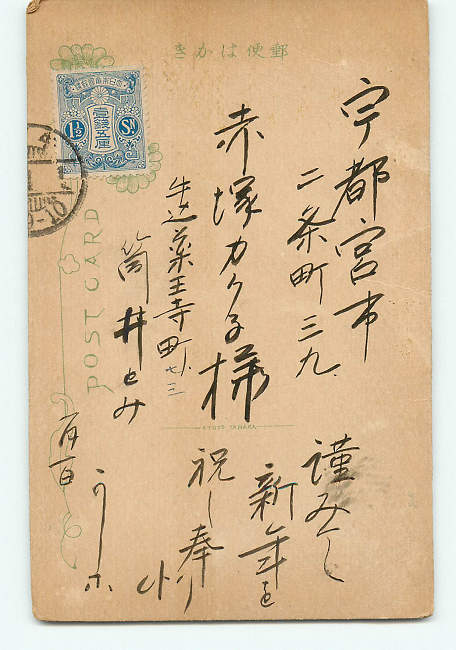 郵便はかき
宇都宮市
二条町三九
赤塚カク子様
牛込薬王寺町七三
筒井とみ
大日本帝國郵便
壹錢五厘
1½ Sn
POST CARD
KYOTO TANAKA
謹みて
新年を
祝し奉り
一月一日
9-10